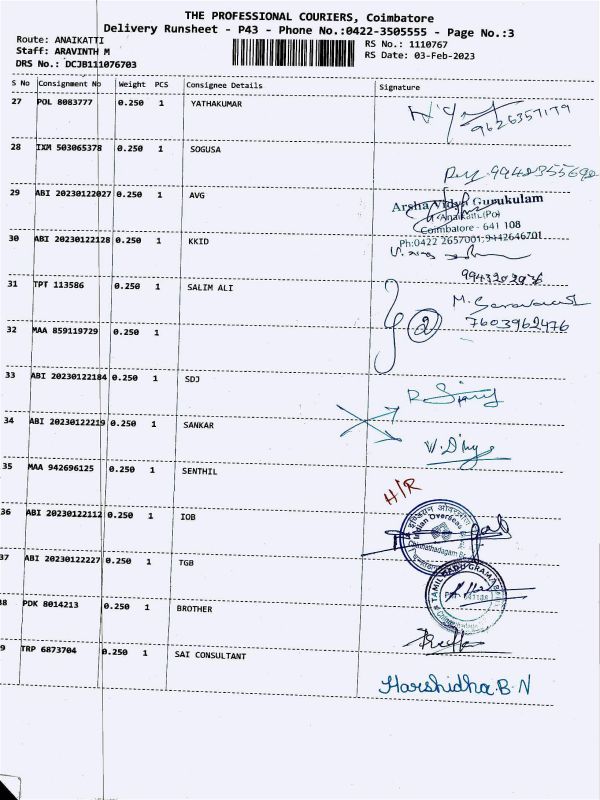 THE PROFESSIONAL COURIERS, Coimbatore
Delivery Runsheet - P43 - Phone No.:0422-3505555 - Page No.:3
Route: ANAIKATTI
Staff: ARAVINTH M
DRS No.: DCJB111076703
RS No.: 1110767
RS Date: 03-Feb-2023
S No Consignment No Weight PCS Consignee Details Signature
27 POL 8083777 0.250 1 YATHAKUMAR
9626357179
28 IXM 503065378 0.250 1 SOGUSA
29 ABI 20230122027 0.250 1 AVG
Arsha Vidya Gurukulam
Anaikatti (Po)
Coimbatore - 641 108
Ph:0422 2657001,9442646701
30 ABI 20230122128 0.250 1 KKID
31 TPT 113586 0.250 1 SALIM ALI
9943202036
2
7603962476
32 MAA 859119729 0.250 1
33 ABI 20230122184 0.250 1 SDJ
34 ABI 20230122219 0.250 1 SANKAR
35 MAA 942696125 0.250 1 SENTHIL
H/R
36 ABI 20230122112 0.250 1 IOB
Indian Overseas
37 ABI 20230122227 0.250 1 TGB
TAMIL NADU GRAMA BANK
38 PDK 8014213 0.250 1 BROTHER
9 TRP 6873704 0.250 1 SAI CONSULTANT
Harshidha.B.N